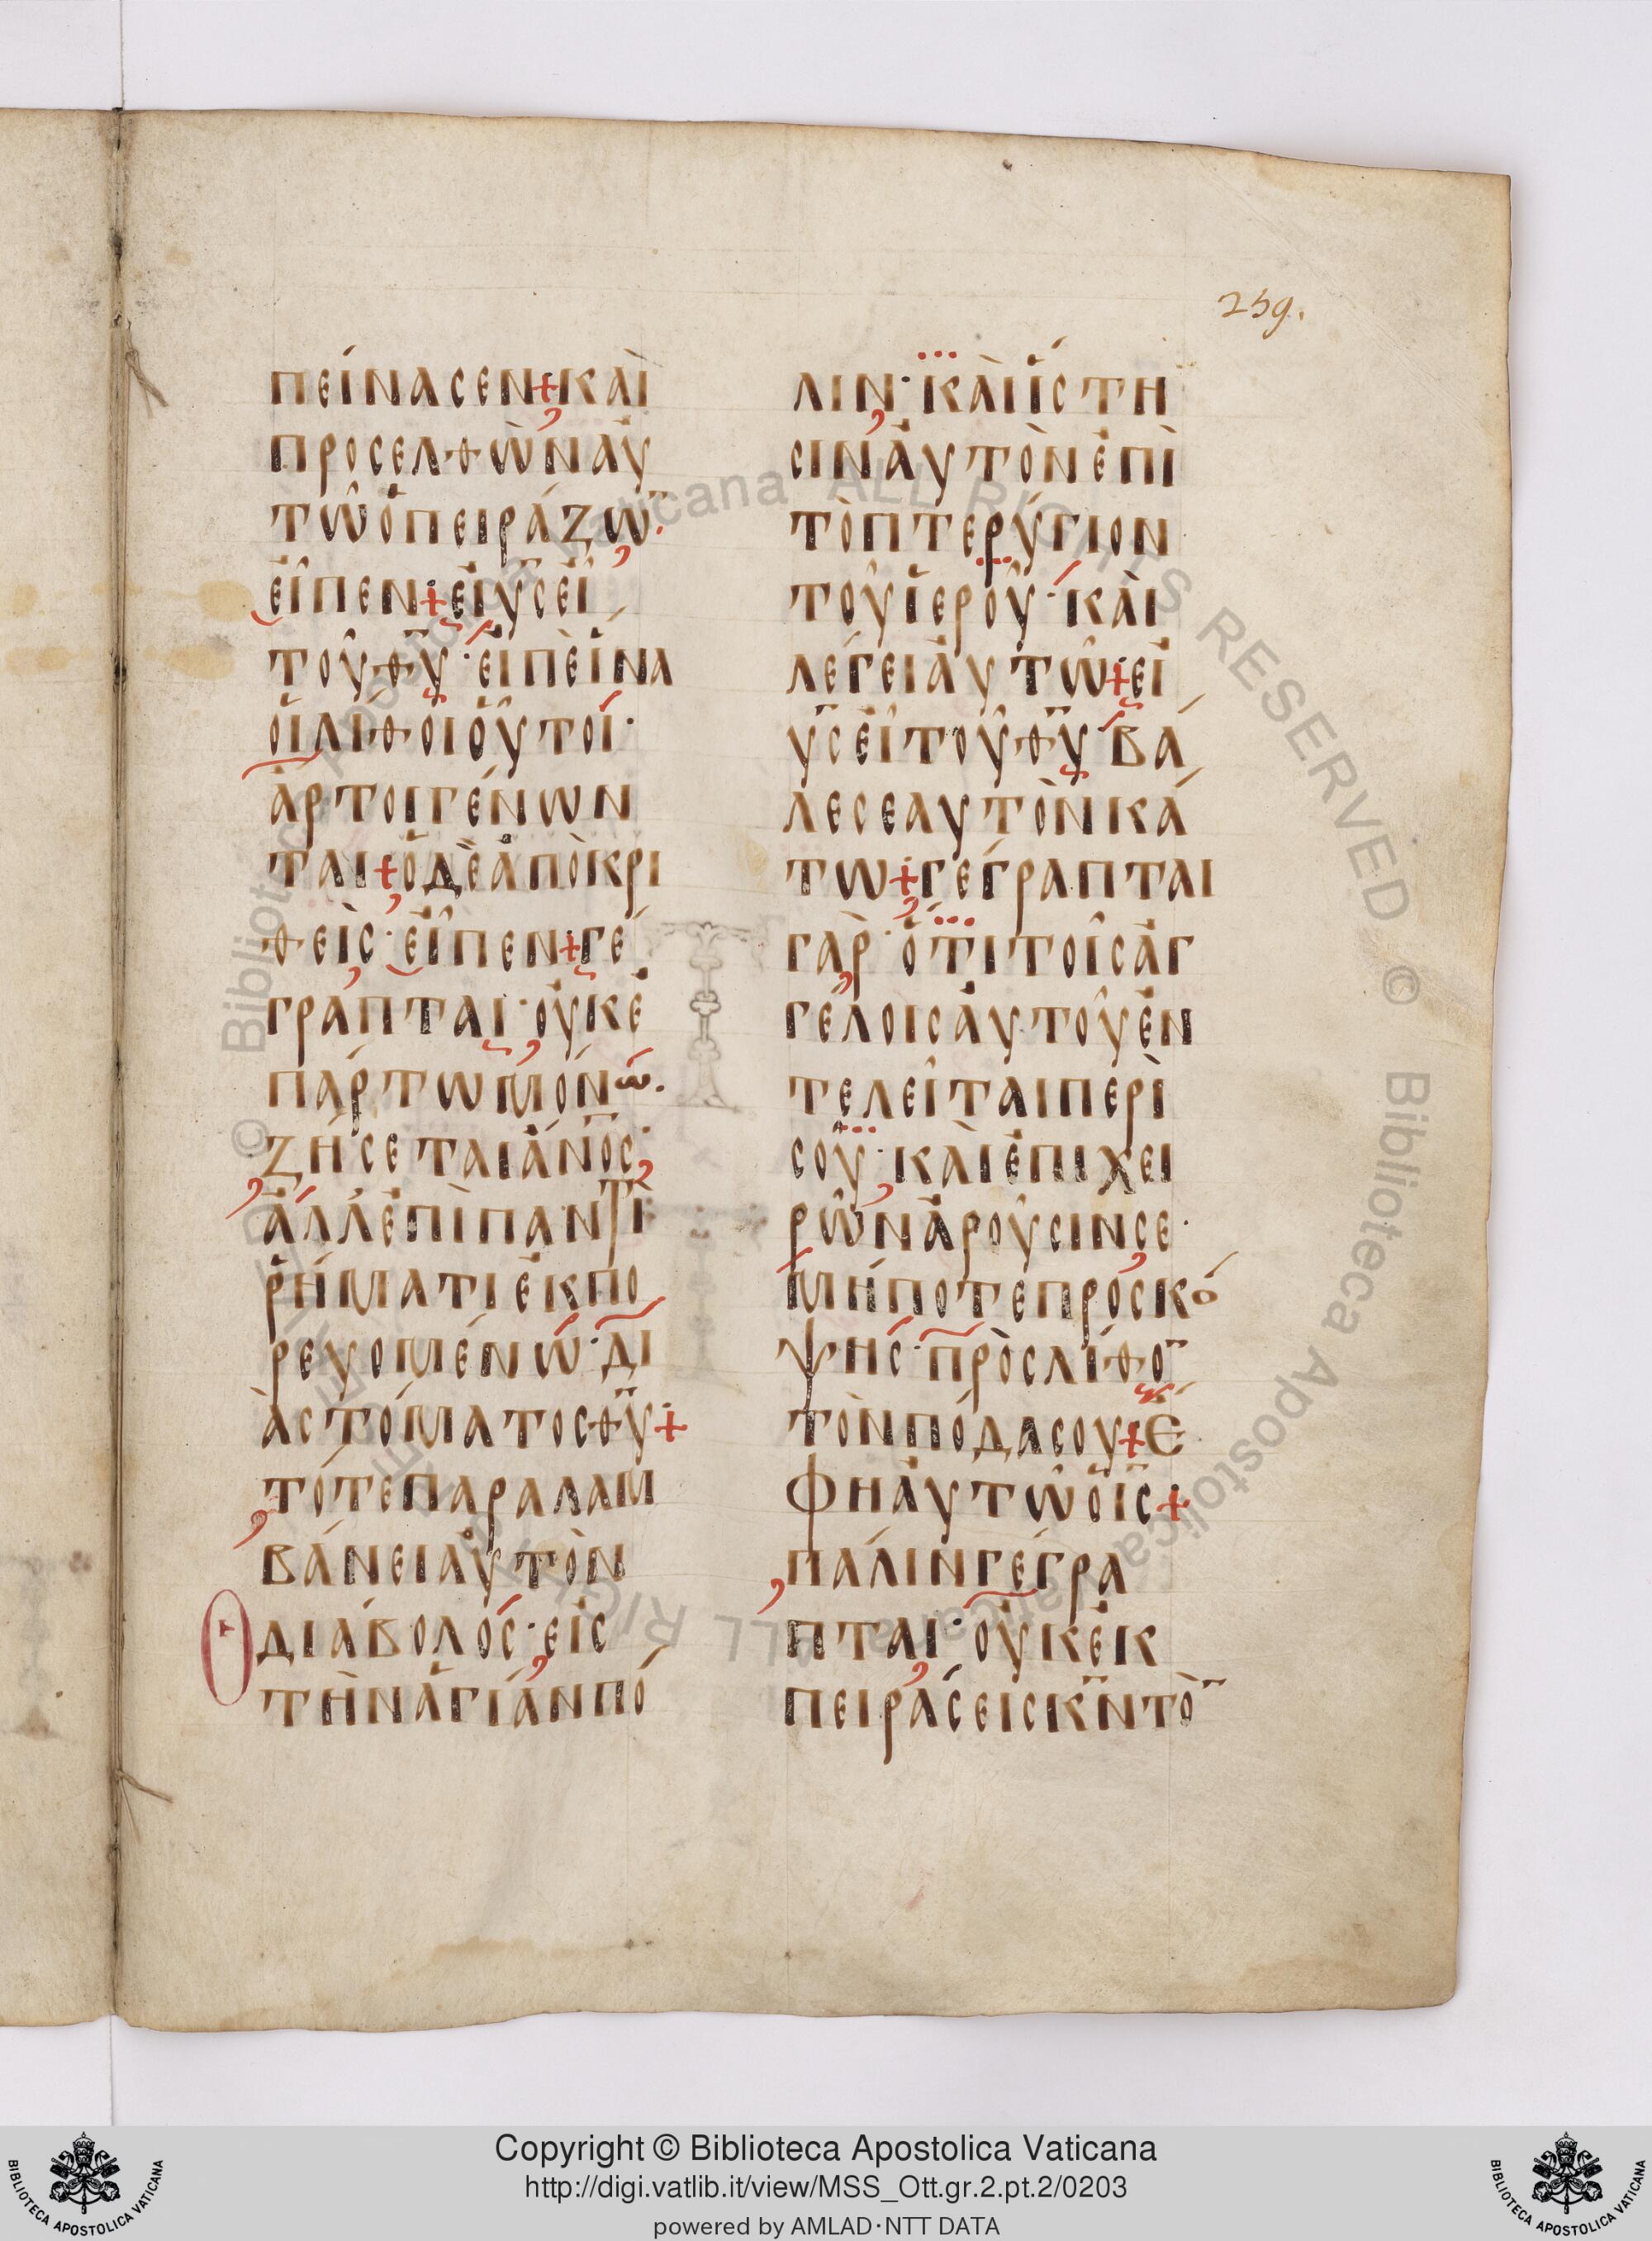 259.
ΠΕΊΝΑΣΕΝ+ΚΑῚ
ΠΡΟΣΕΛΘῺΝΑΥ̓
ΤΩ͂ὉΠΕΙΡΆΖΩ̅.
ΕἾΠΕΝ+ΕἸΥ̅ΣΕΙ͂
ΤΟΥ͂ΘΥ̅·ΕἸΠῈἽΝΑ
ΟἹΛΊΘΟΙΟὟΤΟΙ·
ἌΡΤΟΙΓΈΝΩΝ
ΤΑΙ+ὉΔῈἈΠΟΚΡΙ
ΘΕῚΣ·ΕἾΠΕΝ+ΓΈ
ΓΡΑΠΤΑΙ·ΟΥ̓ΚἘ
ΠΆΡΤΩΜΌΝΩ.
ΖΉΣΕΤΑΙἌΝΟ̅Σ·
ἈΛΛἘΠῚΠΑΝΤῚ
ῬΉΜΑΤΙἘΚΠΟ
ΡΕΥΟΜΈΝΩ·ΔΙ
ᾺΣΤΌΜΑΤΟΣΘΥ̅+
ΤΌΤΕΠΑΡΑΛΑΜ
ΒΆΝΕΙΑΥ̓ΤῸΝ
Ὁ
ΔΙΆΒΟΛΟΣ·ΕἸΣ
ΤῊΝἉΓΊΑΝΠΌ
ΛΙΝ·ΚΑῚἽΣΤΗ
ΣΙΝΑΥ̓ΤῸΝἘΠῚ
ΤῸΠΤΕΡΎΓΙΟΝ
ΤΟΥ͂ἹΕΡΟΥ͂·ΚΑῚ
ΛΈΓΕΙΑΥ̓ΤΩ͂+ΕἸ
Υ̅ΣΕΙ͂ΤΟΥ͂ΘΥ̅ΒΆ
ΛΕΣΕΑΥΤῸΝΚΆ
ΤΩ+ΓΈΓΡΑΠΤΑΙ
ΓᾺΡ·ὍΤΙΤΟΙ͂ΣἈΓ
ΓΈΛΟΙΣΑΥ̓ΤΟΥ͂ἘΝ
ΤΕΛΕΙ͂ΤΑΙΠΕΡῚ
ΣΟΥ͂·ΚΑῚἘΠΙΧΕΙ
ΡΩ͂ΝἈΡΟΥ͂ΣΙΝΣΕ·
ΜΉΠΟΤΕΠΡΟΣΚΌ
ΨΗΣ·ΠΡῸΣΛΊΘΟ̅
ΤῸΝΠΌΔΑΣΟΥ+Ἔ
ΦΗΑΥ̓ΤΩ͂ὉΙ̅Σ̅+
ΠΆΛΙΝΓΈΓΡΑ
ΠΤΑΙ·ΟΥ̓ΚἘΚ
ΠΕΙΡΆΣΕΙΣΚ̅Ν̅ΤῸ̅
Copyright © Biblioteca Apostolica Vaticana
http://digi.vatlib.it/view/MSS_Ott.gr.2.pt.2/0203
powered by AMLAD·NTT DATA
BIBLIOTECA APOSTOLICA VATICANA
BIBLIOTECA APOSTOLICA VATICANA